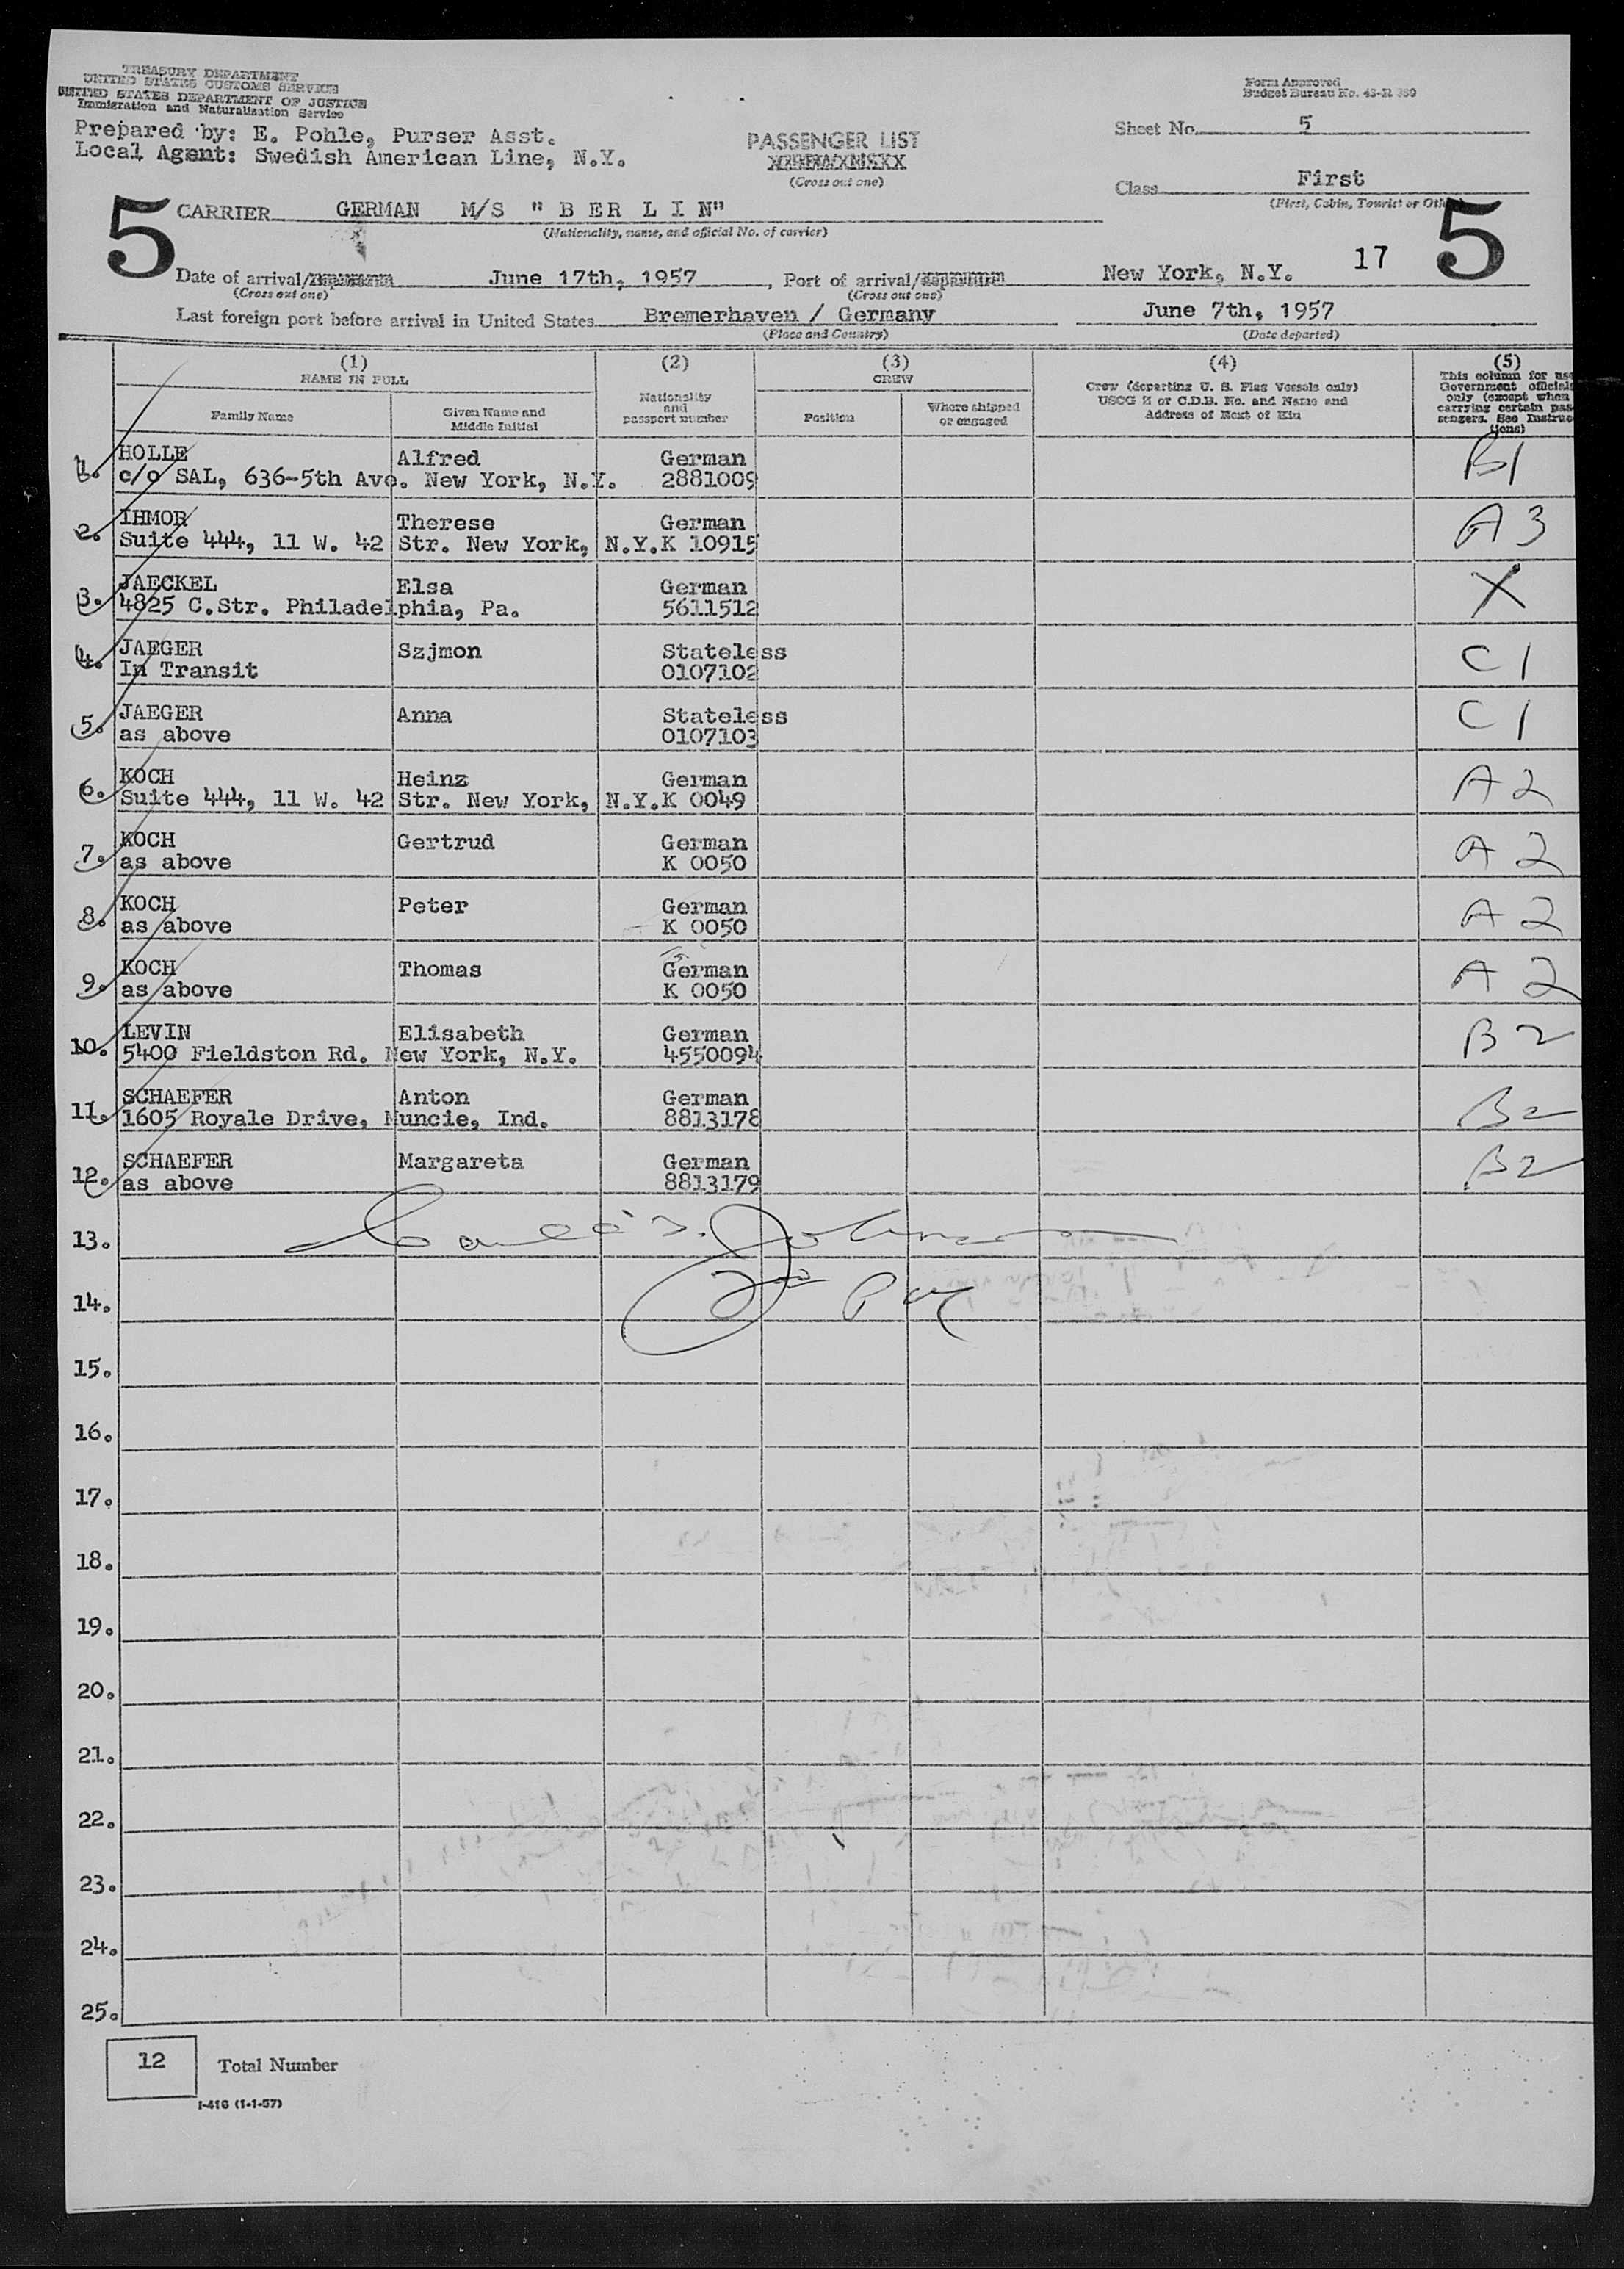 TREASURY DEPARTMENT
UNITED STATES CUSTOMS SERVICE
UNITED STATES DEPARTMENT OF JUSTICE
Immigration and Naturalization Service
Form Approved
Budget Bureau No. 43-R 380
Prepared by: E. Pohle, Purser Asst.
Local Agent: Swedish American Line, N.Y.
PASSENGER LIST
(Cross out one)
Sheet No. 5
Class First
(First, Cabin, Tourist or Oth
5 5
CARRIER GERMAN M/S "BERLIN"
(Nationality, name, and official No. of carrier)
Date of arrival/departure June 17th, 1957, Port of arrival/departure New York, N.Y. 17
(Cross out one) (Cross out one)
Last foreign port before arrival in United States Bremerhaven / Germany June 7th, 1957
(Place and Country) (Date departed)
(1) (2) (3) (4) (5)
NAME IN FULL
Family Name
Given Name and Middle Initial
Nationality and passport number
CREW
Position
Where shipped or engaged
Crew (departing U. S. Flag Vessels only)
USCG Z or C.D.B. No. and Name and
Address of Next of Kin
This column for use
Government officials
only (except when
carrying certain pas-
sengers. See Instruc-
tions)
1. HOLLE Alfred German B1
c/o SAL, 636-5th Ave. New York, N.Y. 2881009
2. IHMOR Therese German A3
Suite 444, 11 W. 42 Str. New York, N.Y. K 10915
3. JAECKEL Elsa German X
4825 C.Str. Philadelphia, Pa. 5611512
4. JAEGER Szjmon Stateless C1
In Transit 0107102
5. JAEGER Anna Stateless C1
as above 0107103
6. KOCH Heinz German A2
Suite 444, 11 W. 42 Str. New York, N.Y. K 0049
7. KOCH Gertrud German A2
as above K 0050
8. KOCH Peter German A2
as above K 0050
9. KOCH Thomas German A2
as above K 0050
10. LEVIN Elisabeth German B2
5400 Fieldston Rd. New York, N.Y. 4550094
11. SCHAEFER Anton German B2
1605 Royale Drive, Muncie, Ind. 8813178
12. SCHAEFER Margareta German B2
as above 8813179
13.
14.
15.
16.
17.
18.
19.
20.
21.
22.
23.
24.
25.
12 Total Number
I-416 (1-1-57)